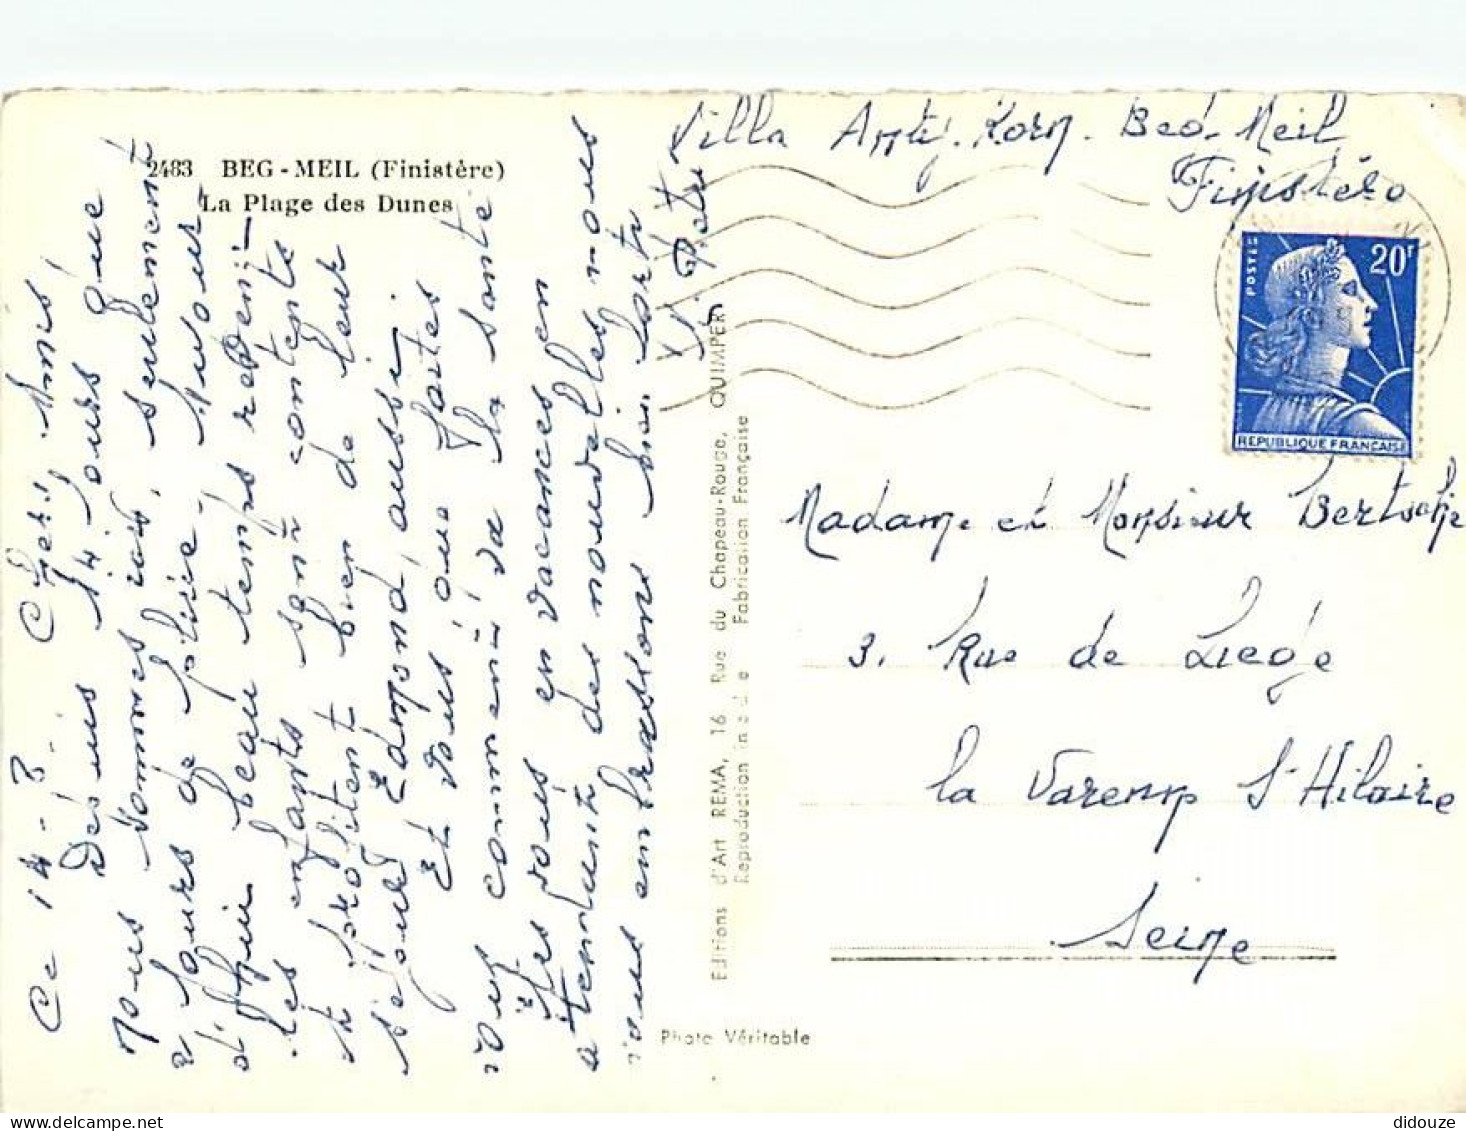 2483 BEG-MEIL (Finistère)
La Plage des Dunes
Ce 14-8- Chers Amis
Depuis 14 jours que
nous sommes ici, seulement
2 jours de pluie. Aujour
d'hui beau temps
les enfants sont contents
et profitent bien de leur
séjour Edmond aussi.
Et vous, que faites
vous comment va la santé
êtes vous en vacances en
attendant des nouvelles nous
vous embrassons bien forts
Villa Beg-Meil
Finistère
POSTES
20F
REPUBLIQUE FRANÇAISE
Editions d'Art REMA, 16 Rue du Chapeau-Rouge, QUIMPER
Reproduction interdite Fabrication Française
Photo Véritable
Madame et Monsieur
3. Rue de Liège
la Varenne St Hilaire
Seine
didouze